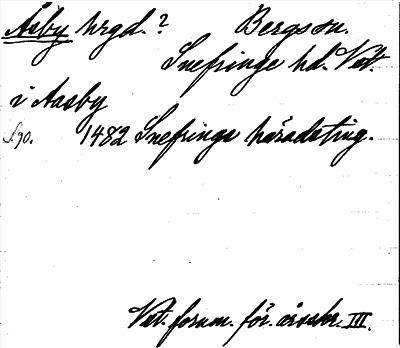 Åsby hrgd.? Bergs sn.
Snefringe hd. Vst.
i Aasby
S. 90. 1482 Snefrings häradsting.
Vst. fornm. för. årsskr. III.